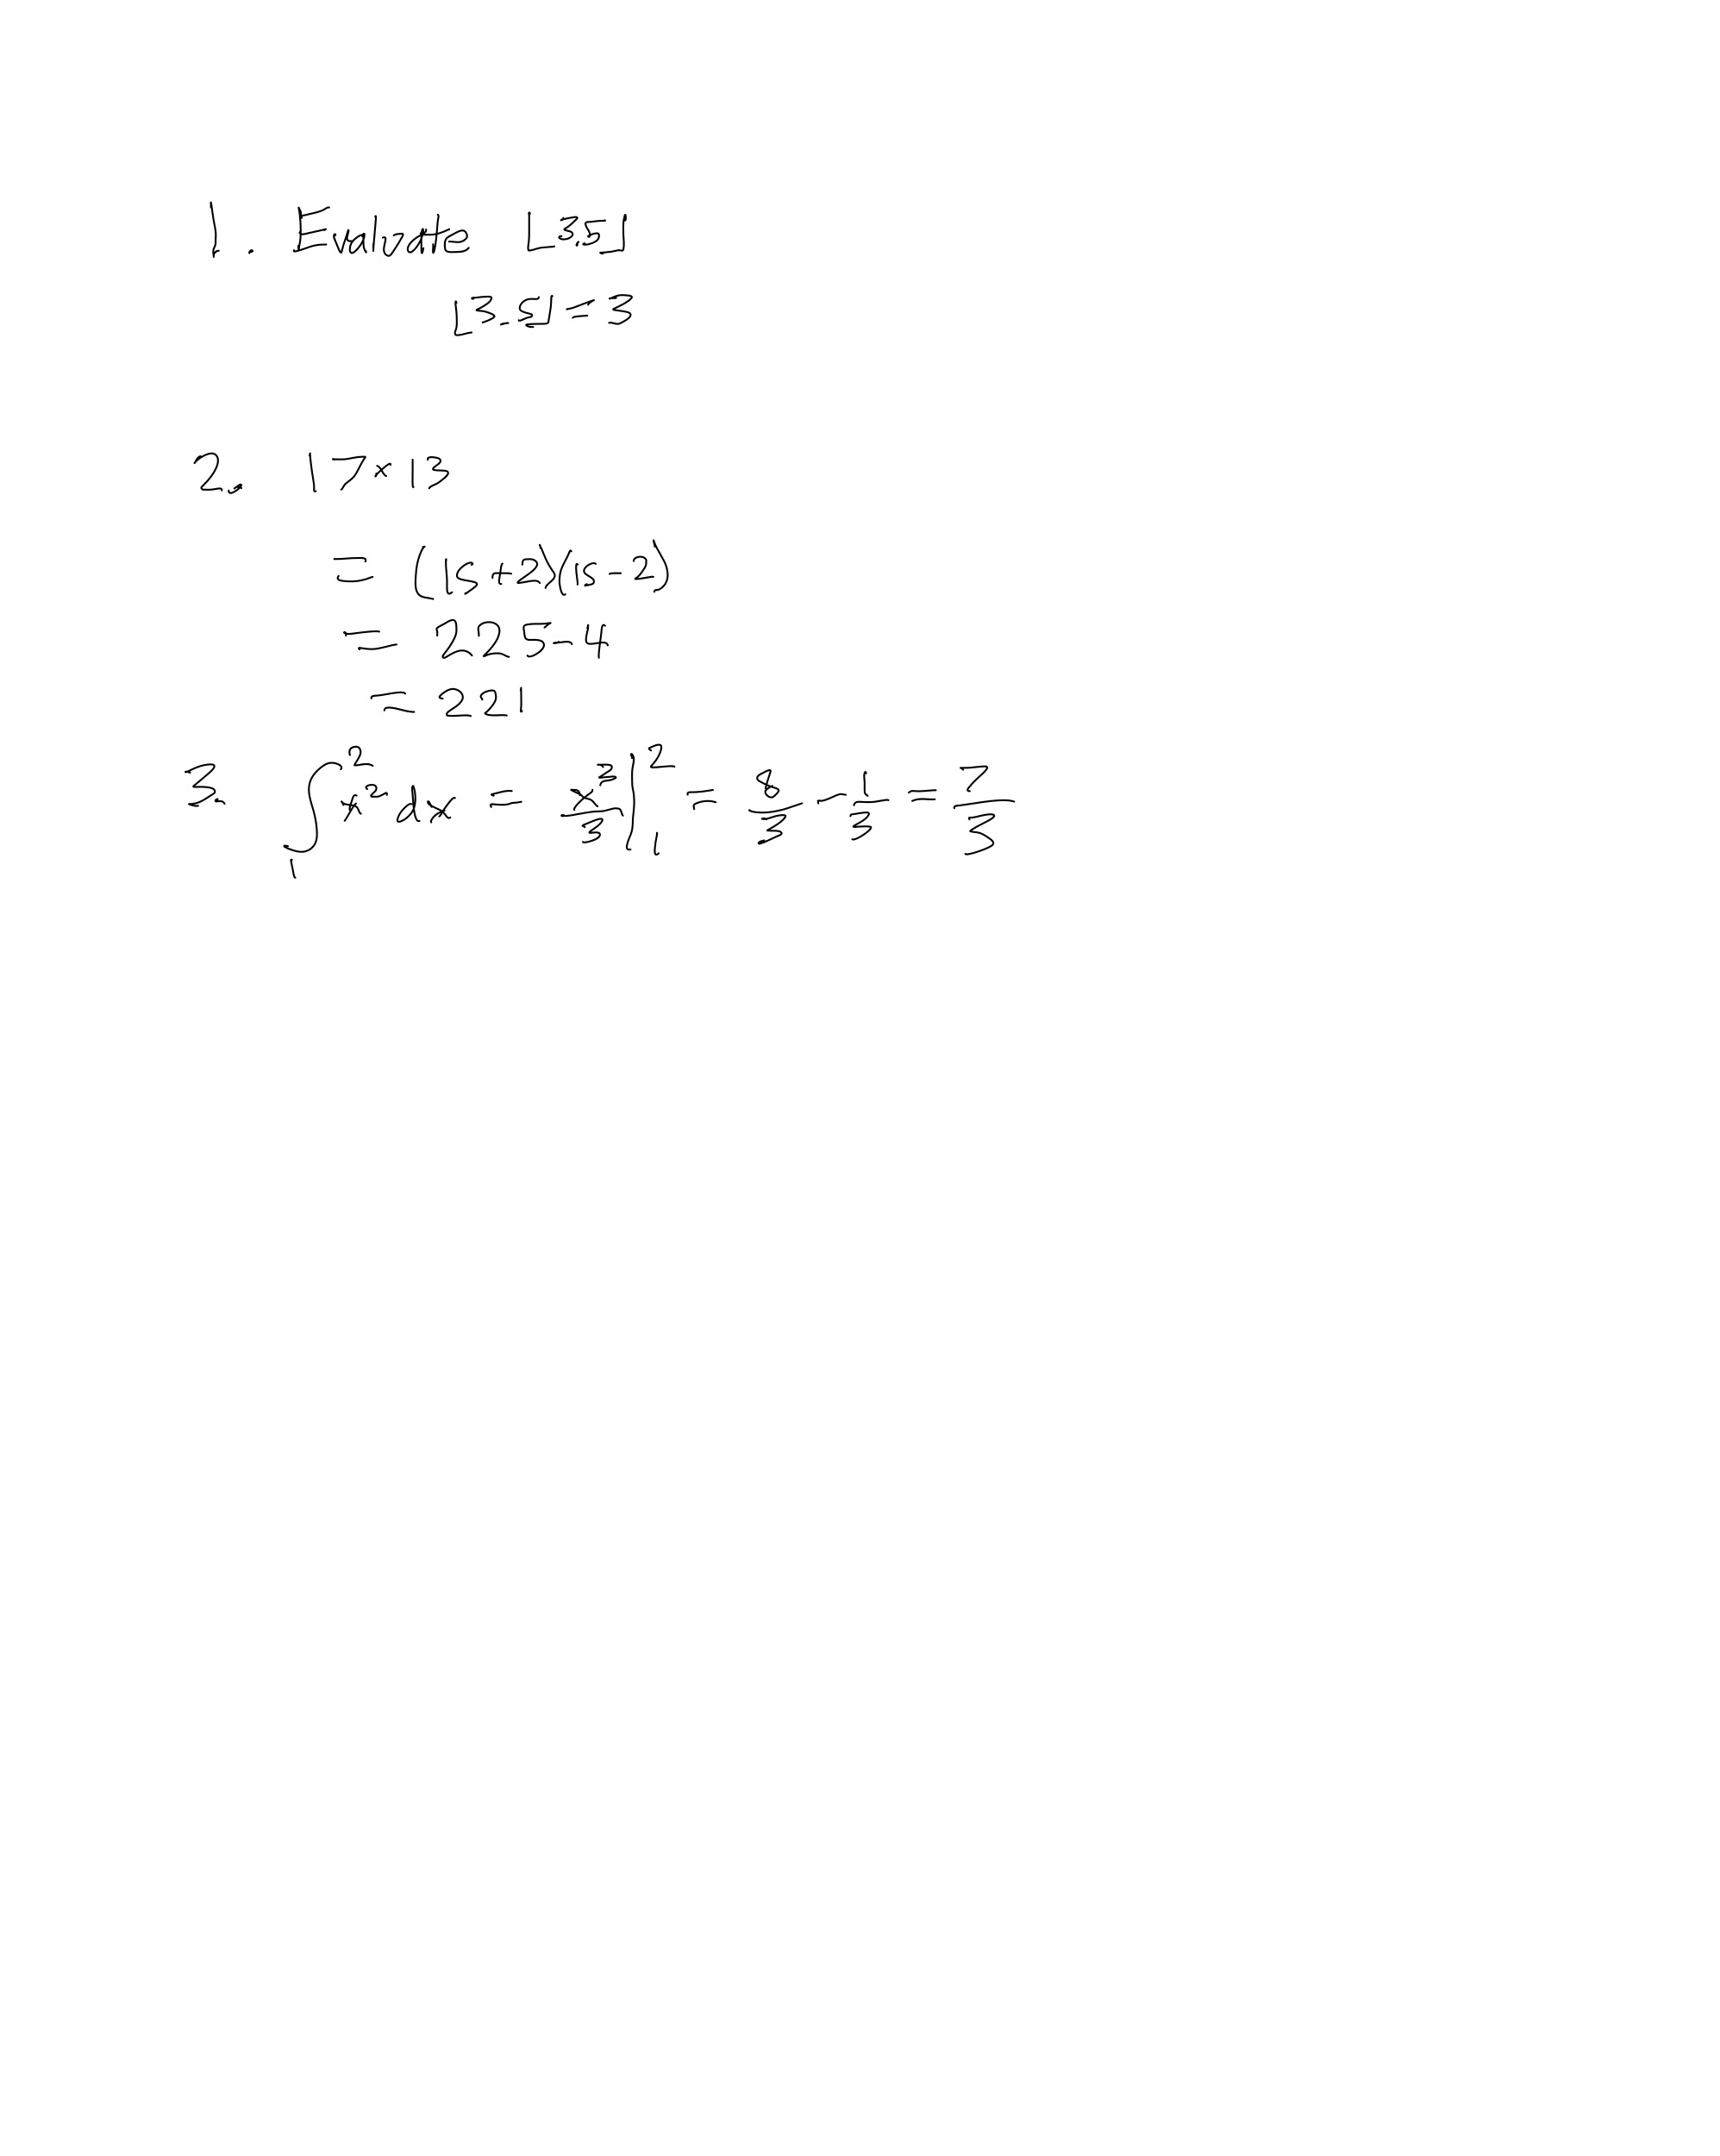 1. Evaluate ⌊3.5⌋
⌊3.5⌋ = 3
2. 17×13
= (15+2)(15-2)
= 225-4
= 221
3. ∫₁² x² dx = x³/3 |₁² = 8/3 - 1/3 = 7/3